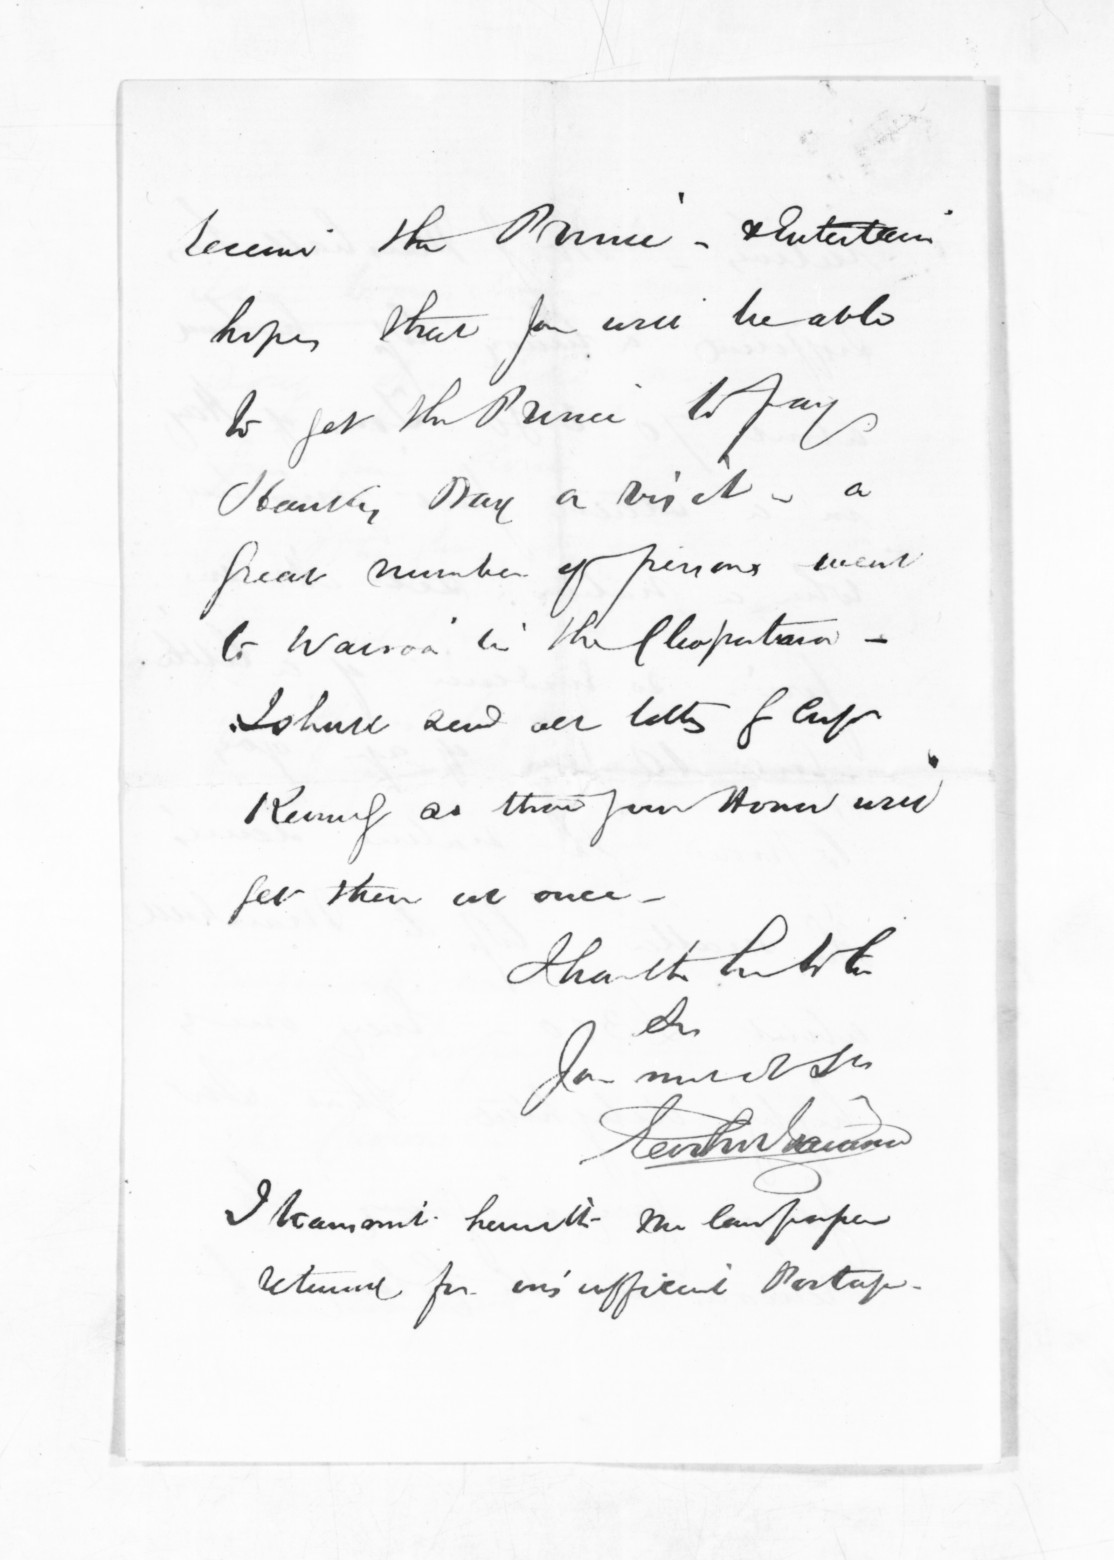 receive the Prince - & Entertain
hopes that you will be able
to get the Prince to pay
Hawkes Bay a visit - a
great number of persons went
to Wairoa in the Cleopatra -
I shall send all letters by Capt
as then your Honor will
get them at once -
I have the honor to be
Sir
Your most obt Srt
I transmit herewith the paper
returned for insufficient Postage -